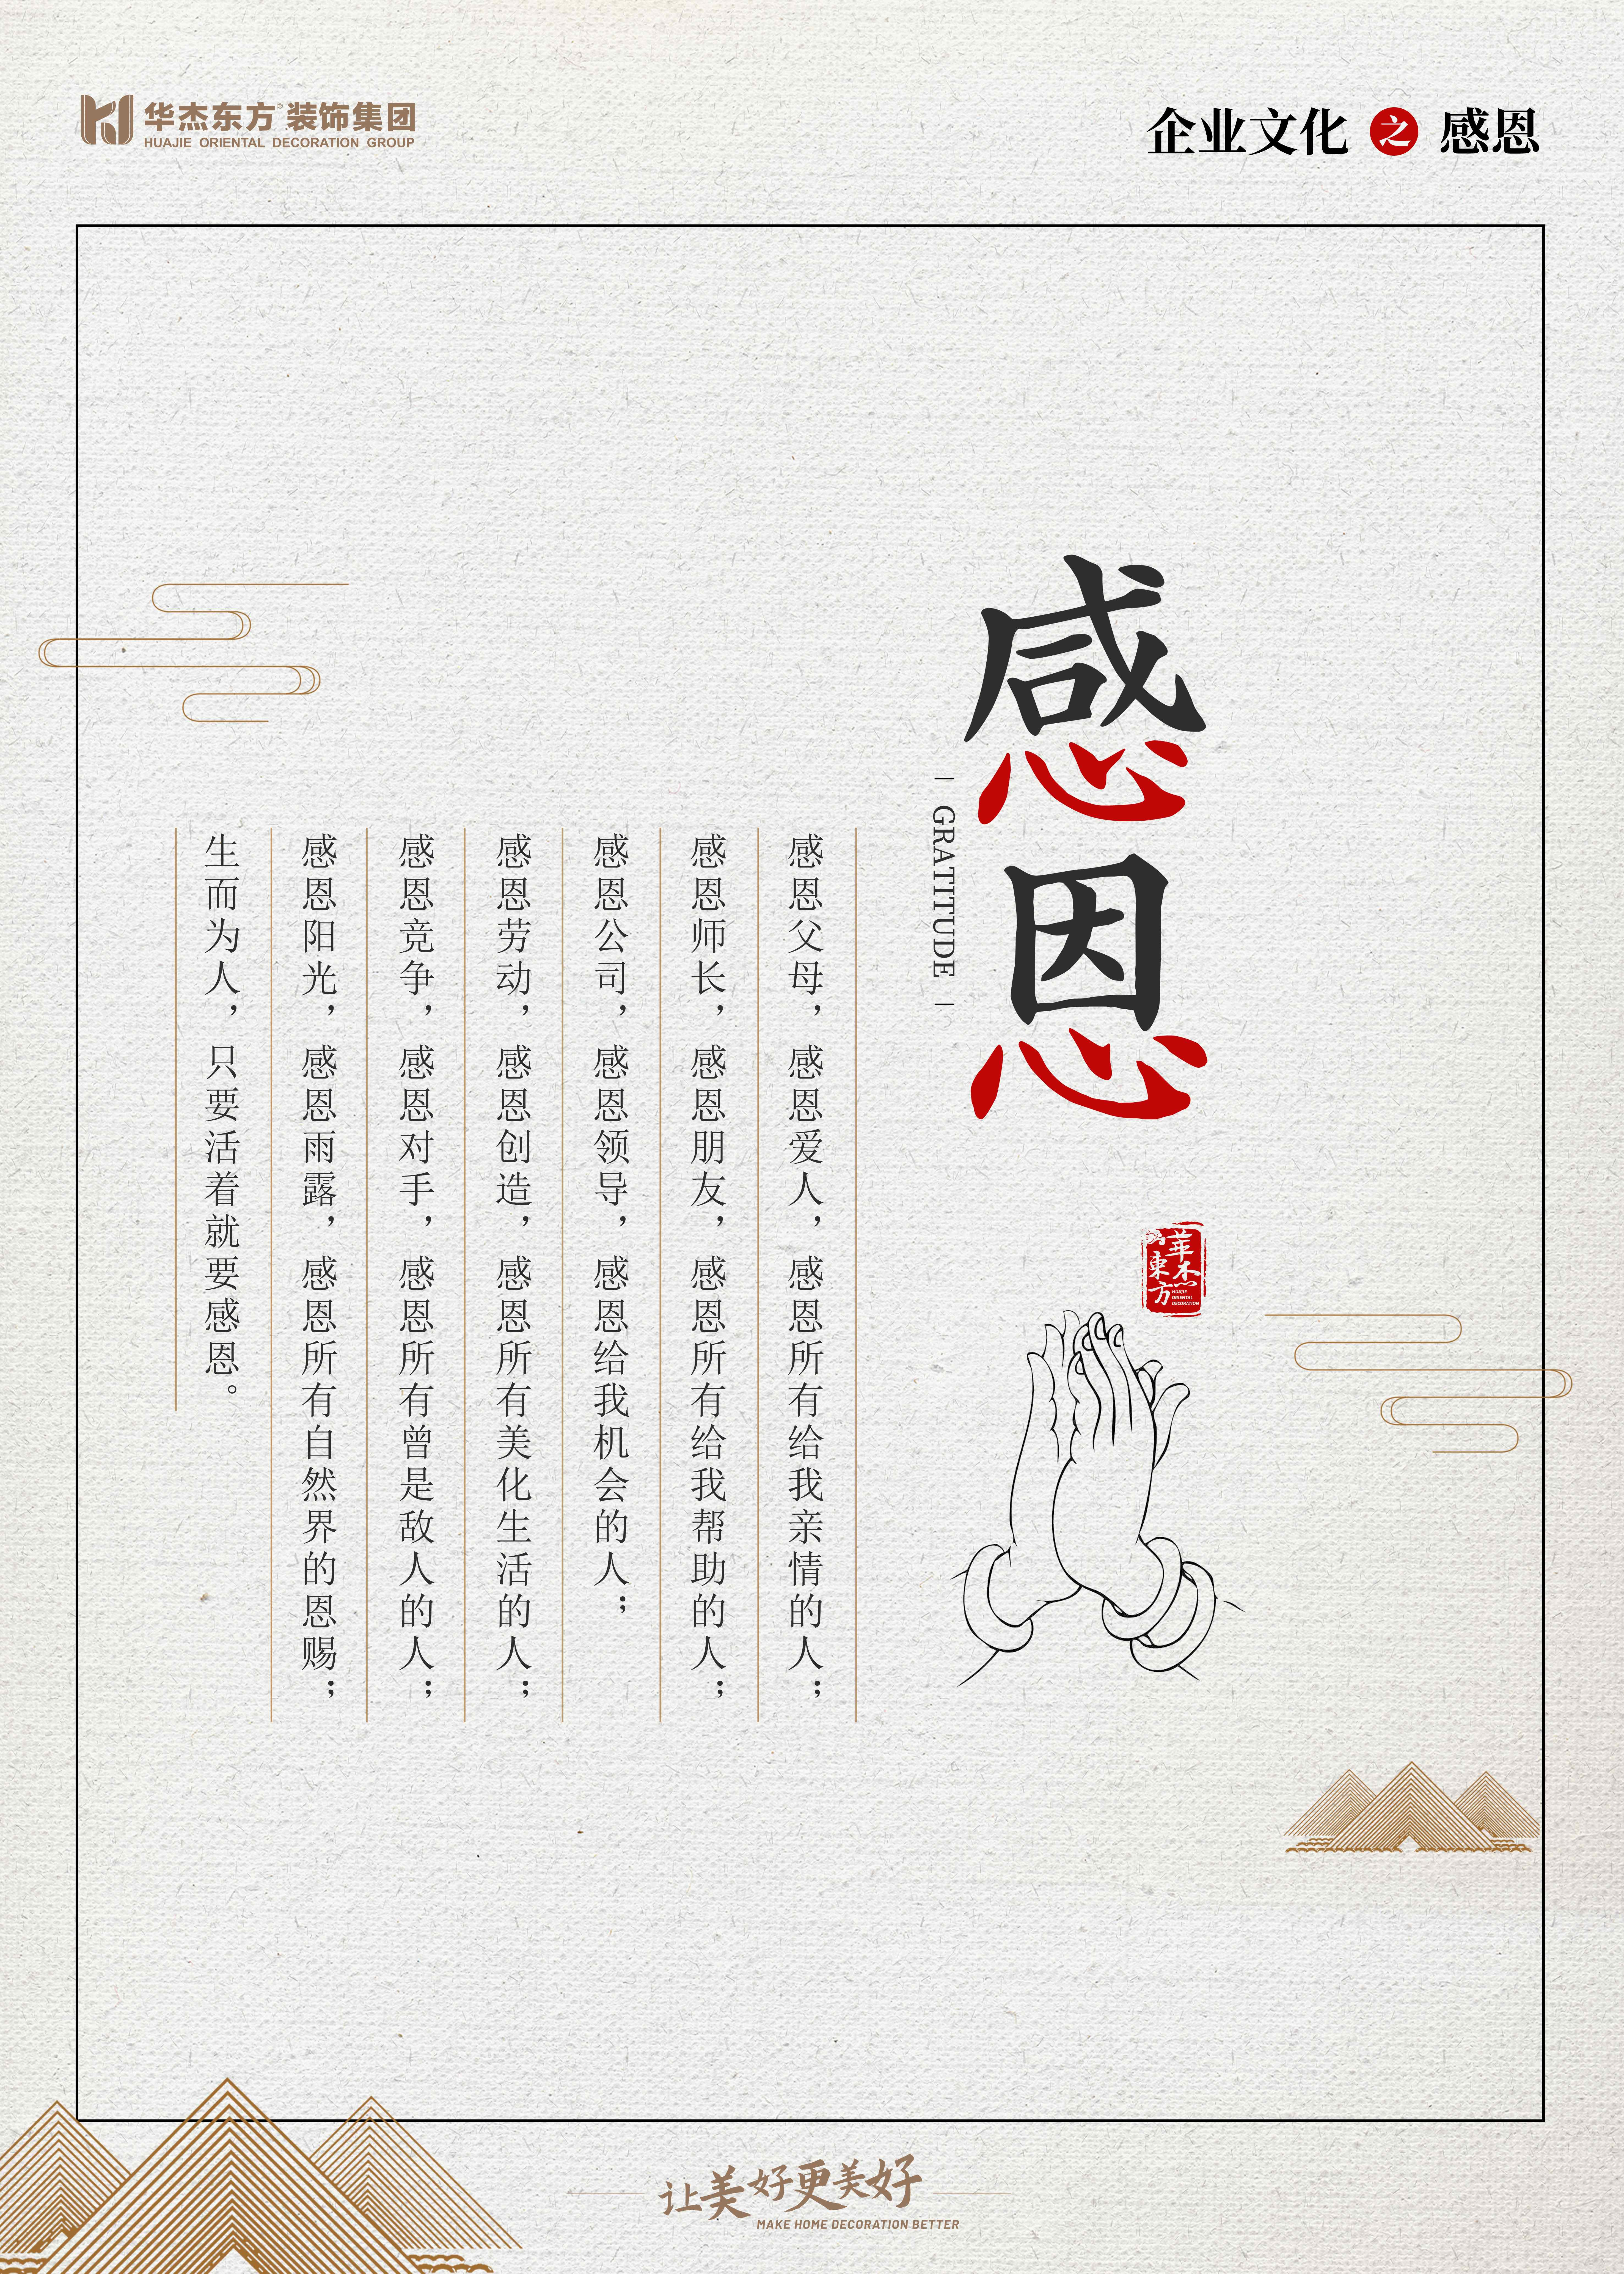 华杰东方 装饰集团
HUAJIE ORIENTAL DECORATION GROUP
企业文化 之 感恩
感恩
GRATITUDE
華杰
東方
HUAJIE
ORIENTAL
DECORATION
感恩父母，感恩爱人，感恩所有给我亲情的人；
感恩师长，感恩朋友，感恩所有给我帮助的人；
感恩公司，感恩领导，感恩给我机会的人；
感恩劳动，感恩创造，感恩所有美化生活的人；
感恩竞争，感恩对手，感恩所有曾是敌人的人；
感恩阳光，感恩雨露，感恩所有自然界的恩赐；
生而为人，只要活着就要感恩。
让美好更美好
MAKE HOME DECORATION BETTER